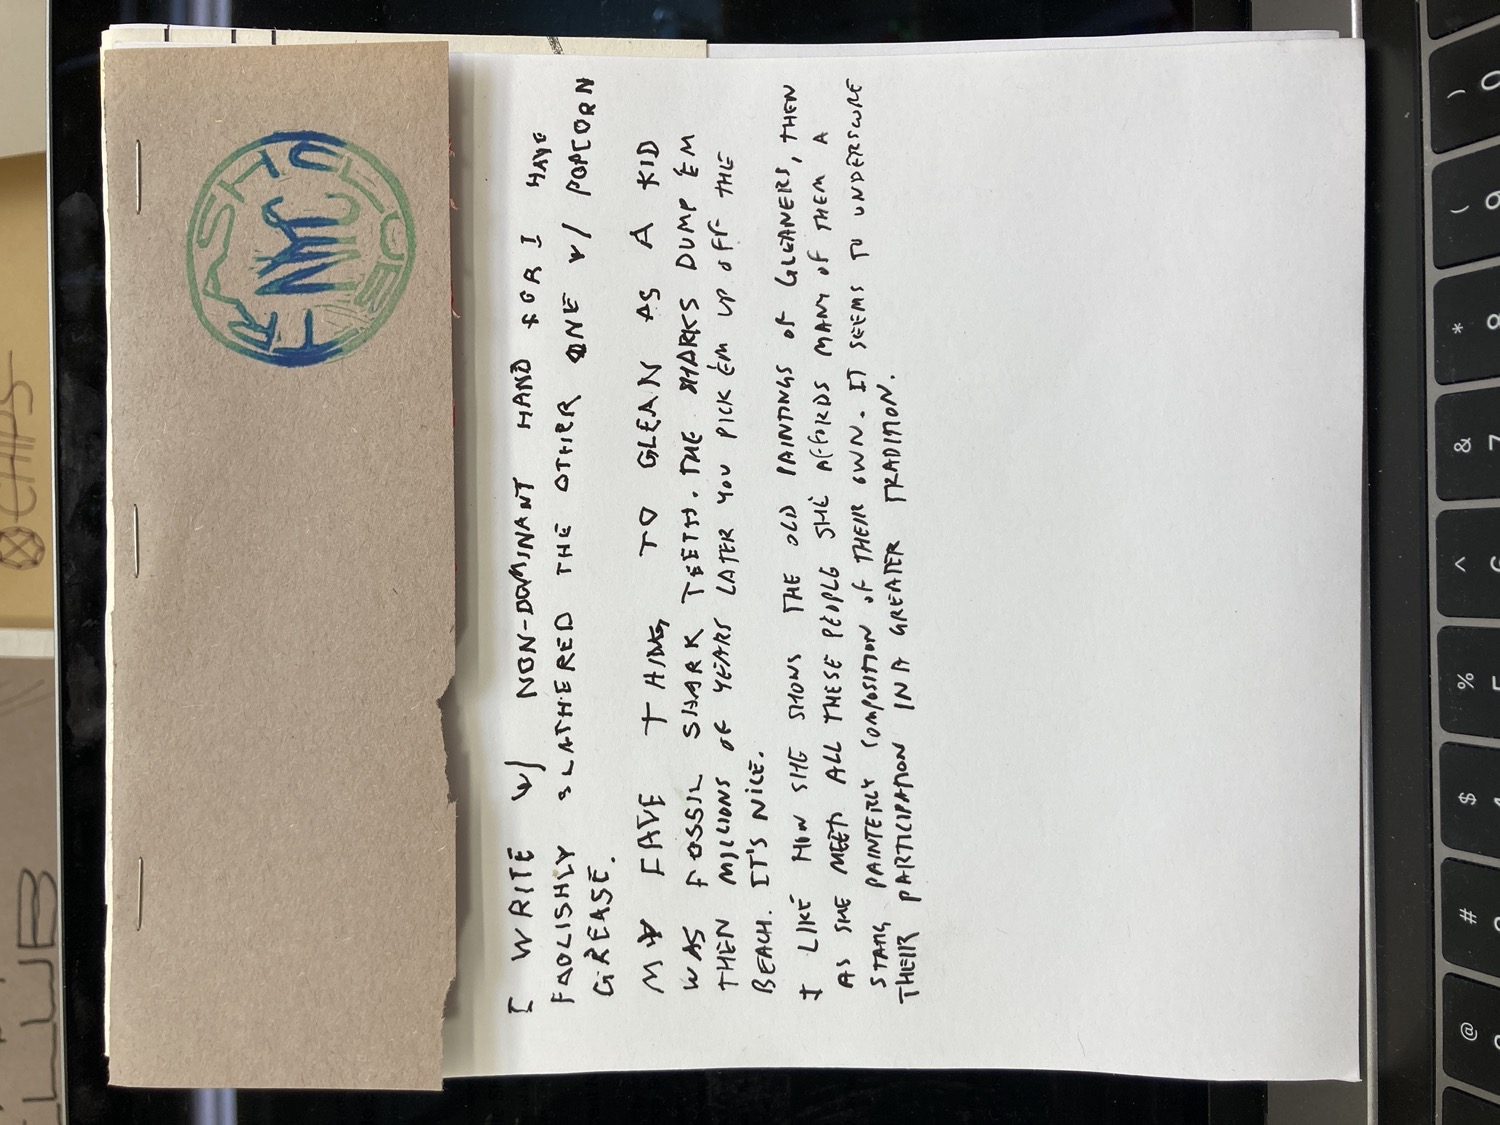 I WRITE W/ NON-DOMINANT HAND FOR I HAVE
FOOLISHLY SLATHERED THE OTHER ONE W/ POPCORN
GREASE.
MY FAVE THING TO GLEAN AS A KID
WAS FOSSIL SHARK TEETH. THE SHARKS DUMP 'EM
THEN MILLIONS OF YEARS LATER YOU PICK 'EM UP OFF THE
BEACH. IT'S NICE.
I LIKE HOW SHE SHOWS THE OLD PAINTINGS OF GLEANERS, THEN
AS SHE MEETS ALL THESE PEOPLE SHE AFFORDS MANY OF THEM A
PAINTERLY COMPOSITION OF THEIR OWN. IT SEEMS TO UNDERSCORE
THEIR PARTICIPATION IN A GREATER TRADITION.
TRASH
CLUB
NYC
CHIPS
)
0
(
9
*
8
&
7
^
6
%
5
$
4
#
@